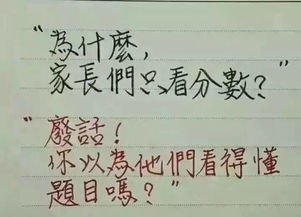 “為什麼，
家長們只看分數？”
“廢話！
你以為他們看得懂
題目嗎？”